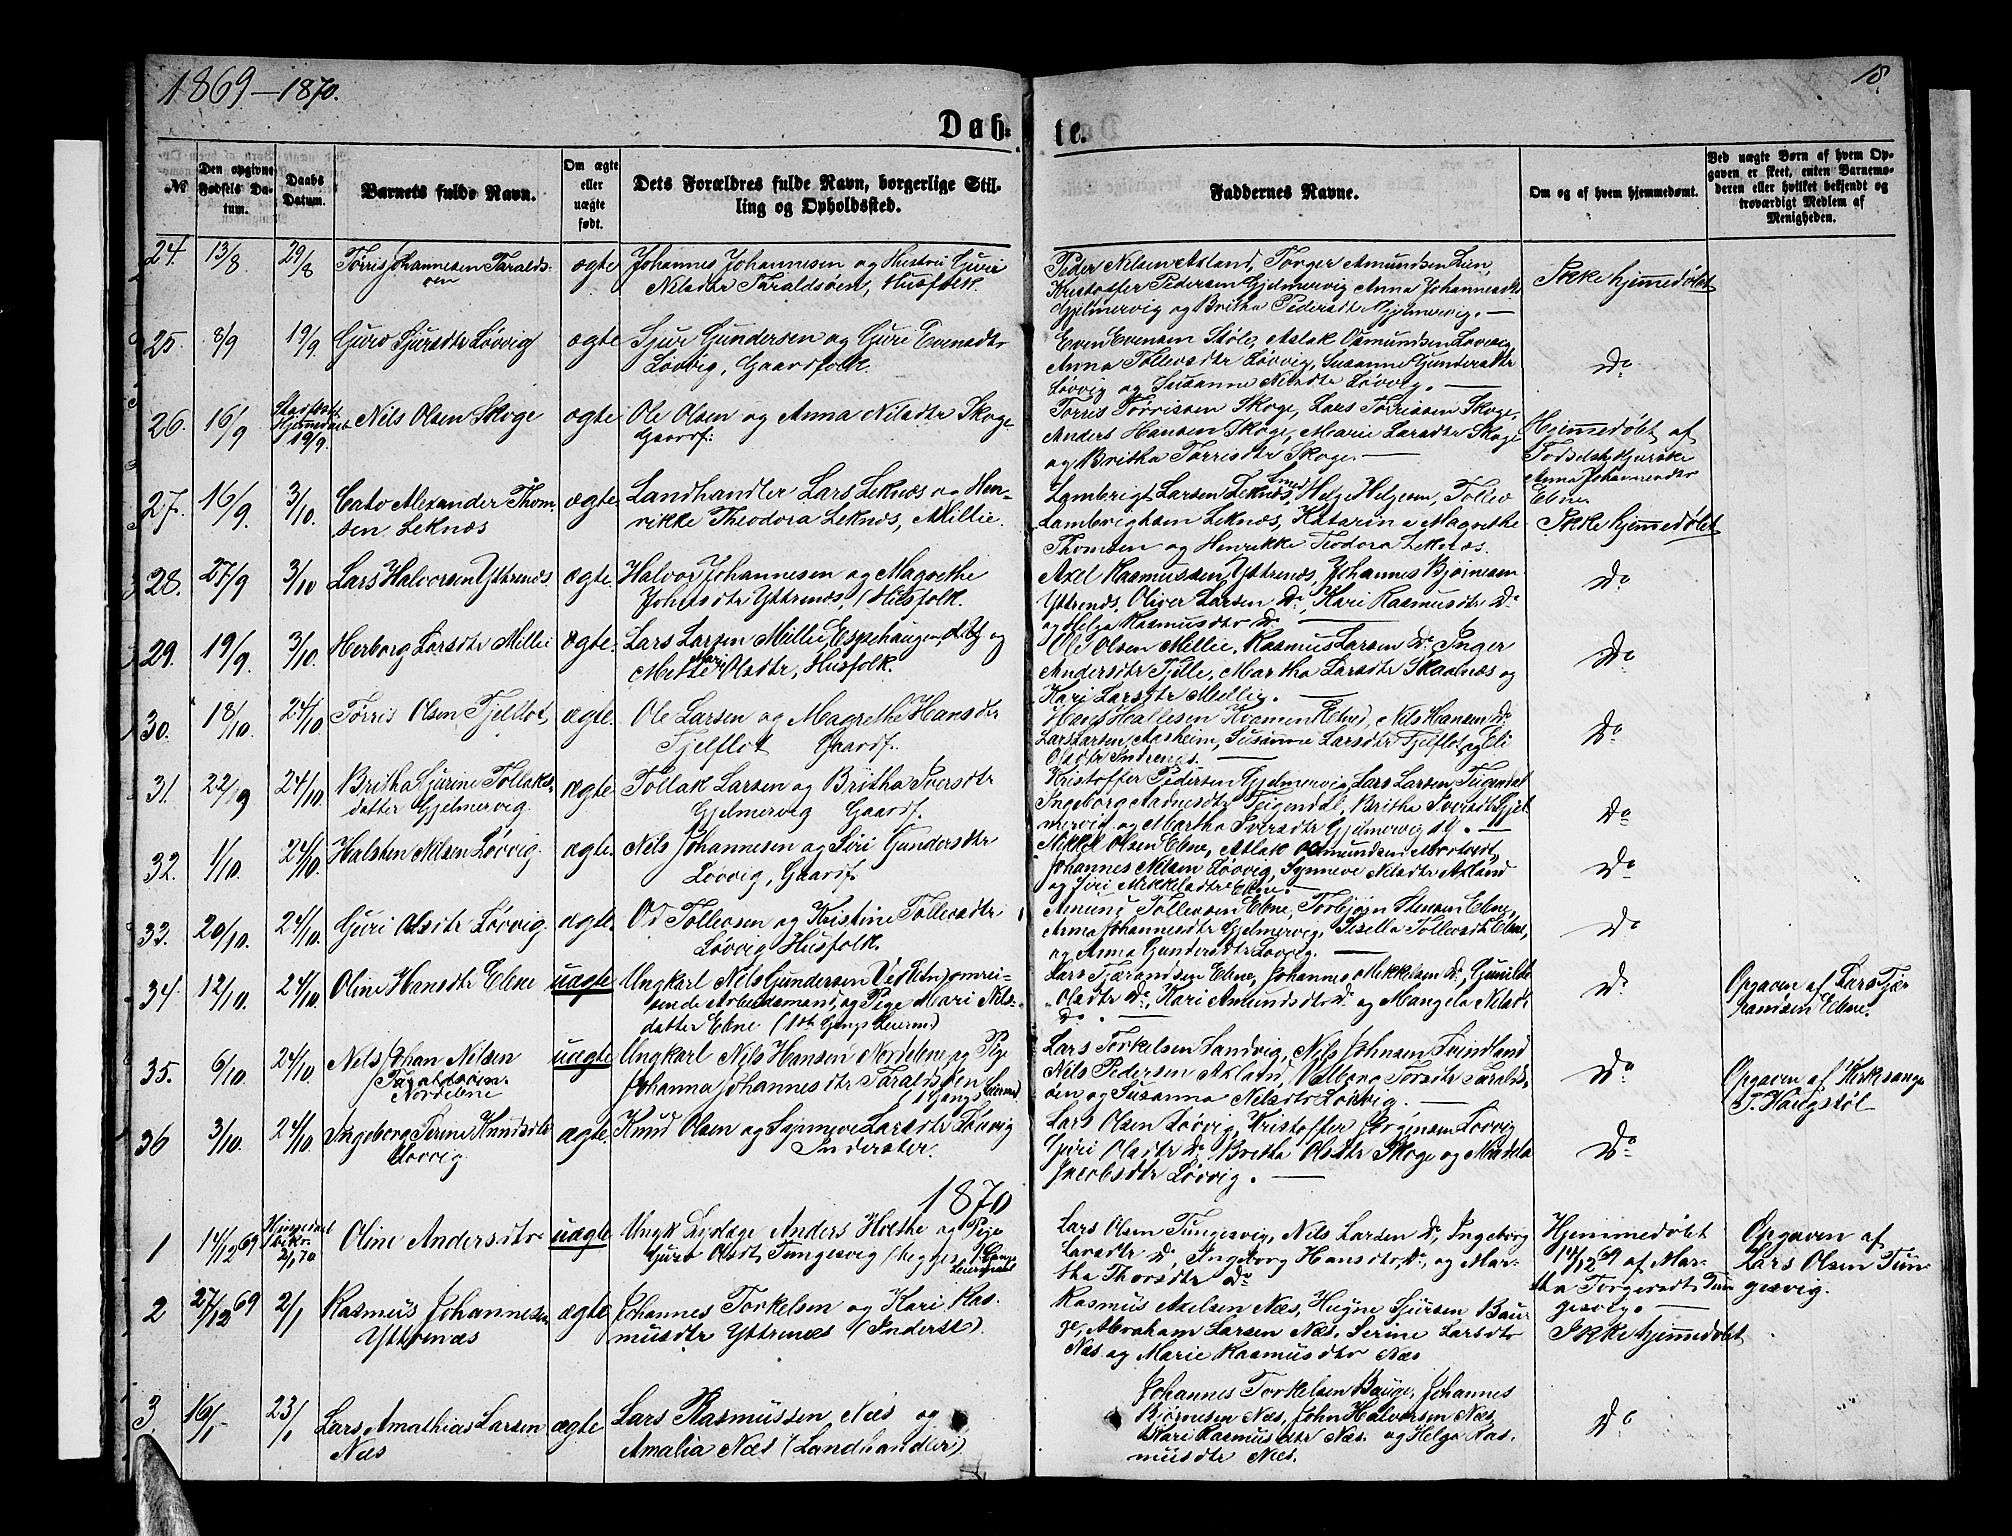 1869-1870.
18.
Døb-
te.
No
Den opgivne Fødsels Datum.
Daabs Datum.
Barnets fulde Navn.
Om ægte eller uægte født.
Dets Forældres fulde Navn, borgerlige Stilling og Opholdssted.
Faddernes Navne.
Om og af hvem hjemmedøbt.
Ved uægte Børn af hvem Opgaven er skeet, enten Barnemoderen eller hvilket bekjendt og troværdigt Medlem af Menigheden.
24. 13/8 29/8 Tørris Johannesen Taralds-
øen
ægte Johannes Johannesen og Hustru Guri
Nilsdtr Taraldsøen, Husfolk.
Peder Nilsen Axland, Torger Amundsen Lien,
Kristoffer Pedersen Gjelmervig Anna Johannesdtr
Gjelmervig og Britha Pedersdtr Gjelmervig.
Ikke hjemmedøbt
25. 8/9 19/9 Guro Sjursdtr Løvvig
ægte Sjur Gundersen og Guri Evensdtr
Løvvig, Gaardfolk.
Even Evensen Støle, Aslak Osmundsen Løvvig
Anna Tollevsdtr Løvvig, Susanne Gundersdtr
Løvvig og Susanne Nilsdtr Løvvig.
Do
26. 16/9 Stadfæst Hjemmedaab 19/9. Nils Olsen Skoge
ægte Ole Olsen og Anna Nilsdtr Skoge
Gaardf:
Torris Tørrissen Skoge, Lars Tørrissen Skoge,
Anders Hansen Skoge, Marie Larsdtr Skoge
og Britha Tørrisdtr Skoge.
Hjemmedøbt af
Fødselshjælperske
Anna Johannesdtr
Ebne
27. 16/9. 3/10. Cato Alexander Thom-
sen Leknæs
ægte Landhandler Lars Leknæs og Hen-
rikke Theodora Leknæs, Millie.
Lambrigt Larsen Leknæs, Helge Helgesen, Tollev
Lambrigtsen Leknæs, Katarine Magrethe
Thomsen og Henrikke Teodora Leknæs.
Ikke hjemmedøbt
28. 27/9 3/10 Lars Halvorsen Yttrenæs
ægte. Halvor Johannesen og Magrethe
Johnsdtr Yttrenæs, (Husfolk.
Axel Rasmussen Yttrenæs, Johannes Bjørnesen
Yttrenæs, Oliver Larsen Do, Kari Rasmusdtr Do
og Helga Rasmusdtr Do
Do
29. 19/9. 3/10. Herborg Larsdtr Millie
ægte. Lars Larsen Millie, Espehaugen, og
Mette Mari Olsdtr, Husfolk.
Ole Olsen Millie, Rasmus Larsen Do Inger
Andersdtr Tjelle, Martha Larsdtr Skaanæs og
Kari Larsdtr Millie.
Do
30. 18/10. 24/10. Tørris Olsen Fjelflot,
ægte. Ole Larsen og Magrethe Hansdtr
Fjelflot Gaardf.
Nils Hansen Do
Lars Larsen Aasheim, Susanne Larsdtr Fjelflot og Eli
Olsdtr Indrenæs.
Do
31. 22/9 24/10. Britha Sjurine Tollaks-
datter Gjelmervig.
ægte Tollak Larsen og Britha Iversdtr
Gjelmervig Gaardf.
Kristoffer Pedersen Gjelmervig Lars Larsen Teigendal
Ingeborg Aadnesdtr Teigendl. Britha Iversdtr Gjel
mervig og Martha Iversdtr Gjelmervig
Do
32. 1/10. 24/10. Halsten Nilsen Løvvig.
ægte. Nils Johannesen og Siri Gundersdtr
Løvvig, Gaardf.
Mikkel Olsen Ebne, Aslak Osmundsen
Johannes Nilsen Løvvig, Synneve Nilsdtr Axland
og Siri Mikkelsdtr Ebne.
Do
33. 20/10. 24/10. Guri Olsdtr Løvvig
ægte. Od Tollevsen og Kristine Tollevsdtr
Løvvig Husfolk.
Amund Tollevsen Ebne, Torbjørn Stensen Ebne,
Anna Johannesdtr Gjelmervig, Sisella Tollevsdtr Ebne,
og Anna Gundersdtr Løvvig.
Do
34. 12/10. 24/10. Oline Hansdtr Ebne
uægte Ungkarl Nils Gundersen omrei-
sende Arbeidsmand, og Pige Mari Nils-
datter Ebne (1ste Gangs Leierm)
Lars Fjærandsen Ebne, Johannes Mikkelsen Do, Gunilda
Olsdtr Do, Kari Amundsdtr Do og Mangela Nilsdtr
Do.
Do
Opgaven af Lars Fjæ-
randsen Ebne.
35. 6/10. 24/10. Nels Johan Nilsen
Taraldsøen.
Nordebne
uægte Ungkarl Nils Hansen Nordebne og Pige
Johanna Johannesdtr Taraldsøen
(1 Gangs Leiermd
Lars Torkelsen Sandvig, Nils Johnsen Svindland
Nils Pedersen Axland, Valborg Torsdtr Taralds-
øen og Susanna Nilsdtr Løvvig.
Do
Opgaven af Kirkesanger
T. Haugstøl
36 3/10. 24/10. Ingeborg Serine Knudsdtr
Løvvig
ægte Knud Olsen og Synneve Larsdtr Løvvig
Inderster.
Lars Olsen Løvvig, Kristoffer Jørgensen Løvvig
Guri Olsdtr Do Britha Olsdtr Skoge og Madela
Jacobsdtr Løvvig.
Do
1870
1 14/12 69 Hjemmedaab bekr. 2/1 70 Oline Andersdtr
uægte Ungk Lydløge Anders Holthe og Pige
Guro Olsdtr Tungesvig (begges 1 Gangs Leiermaal
Lars Olsen Tungesvig, Nils Larsen Do, Ingeborg
Larsdtr Do, Ingeborg Hansdtr Do, og Mar-
tha Thorsdtr Do
Hjemmedøbt
14/12 69 af Mar-
tha Torgersdtr Tun
gesvig.
Opgaven af
Lars Olsen Tun
gesvig.
2 27/12 69 2/1 Rasmus Johannesen
Yttrenæs
ægte Johannes Torkelsen og Kari Ras-
musdtr Yttrenæs (Inderst).
Rasmus Axelsen Næs, Hugne Sjursen Bau-
ge, Abraham Larsen Næs, Serine Larsdtr
Næs og Marie Rasmusdtr Næs
Ikke hjemmedøbt
3. 16/1 23/1 Lars Amathias Larsen
Næs
ægte Lars Rasmussen Næs og
Amalia Næs (Landhandler)
Johannes Torkelsen Bauge, Johannes
Bjørnesen Næs, John Halvorsen Næs
Kari Rasmusdtr Næs. og Helga Ras-
musdtr Næs.
Do